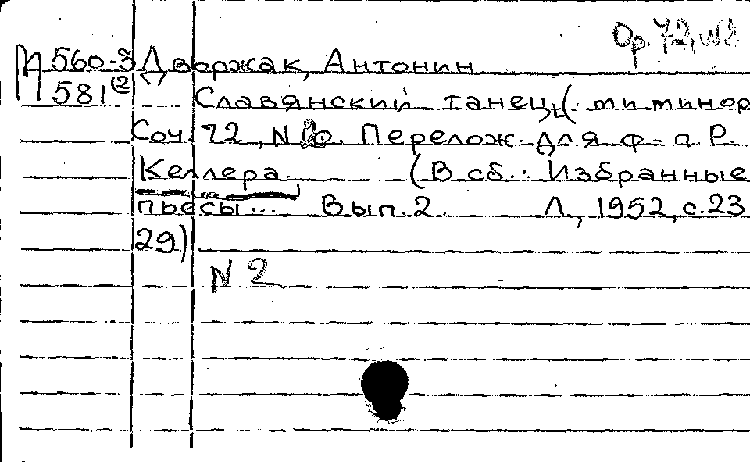 Op 72, №2
М 560-3 Дворжак, Антонин
581(2) Славянский танец, (ми минор
Соч. 72, N Перелож. для ф-п. Р.
Келлера (В сб.: Избранные
пьесы... Вып. 2. Л., 1952, с. 23
29)
N 2